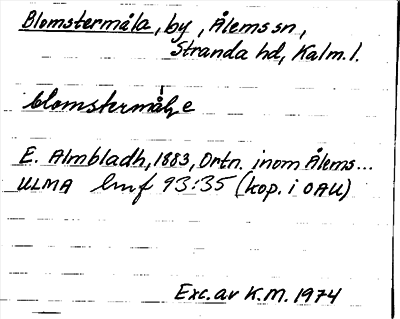 Blomstermåla, by, Ålems sn,
Stranda hd, Kalm. l.
blomstermål,e
E. Almbladh, 1883, Ortn. inom Ålems...
ULMA lmf 93:35 (kop. i OAU)
Exc. av K.M. 1974